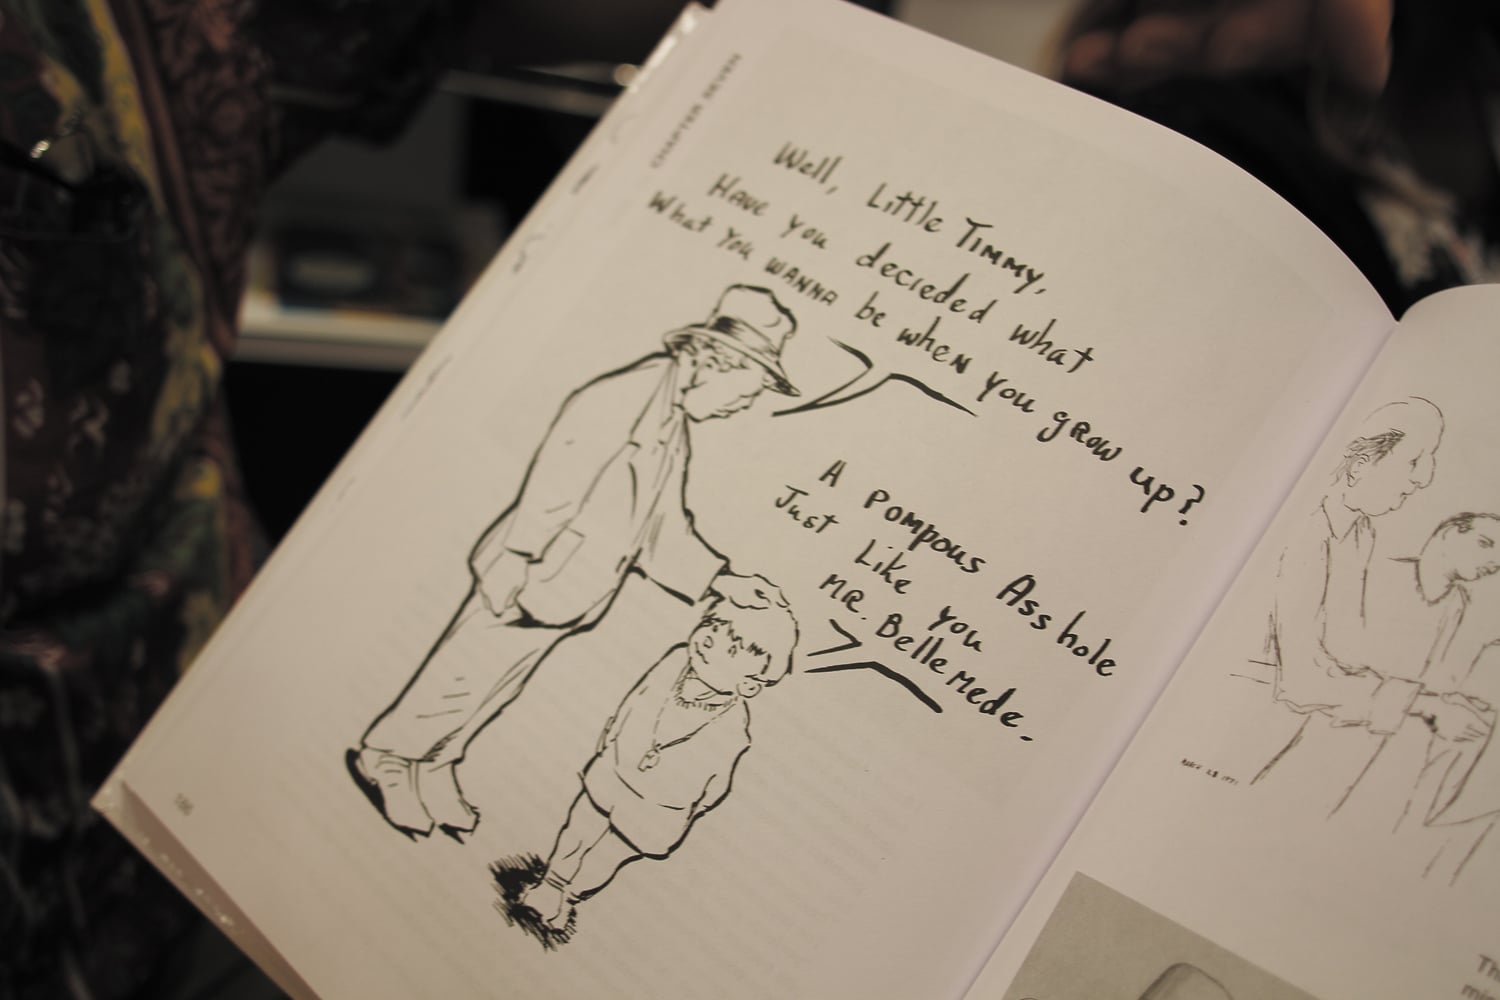 CHAPTER SEVEN
Well, Little Timmy,
Have you decieded what
What you wanna be when you grow up?
A pompous Asshole
Just Like you
MR. Bellemede.
186